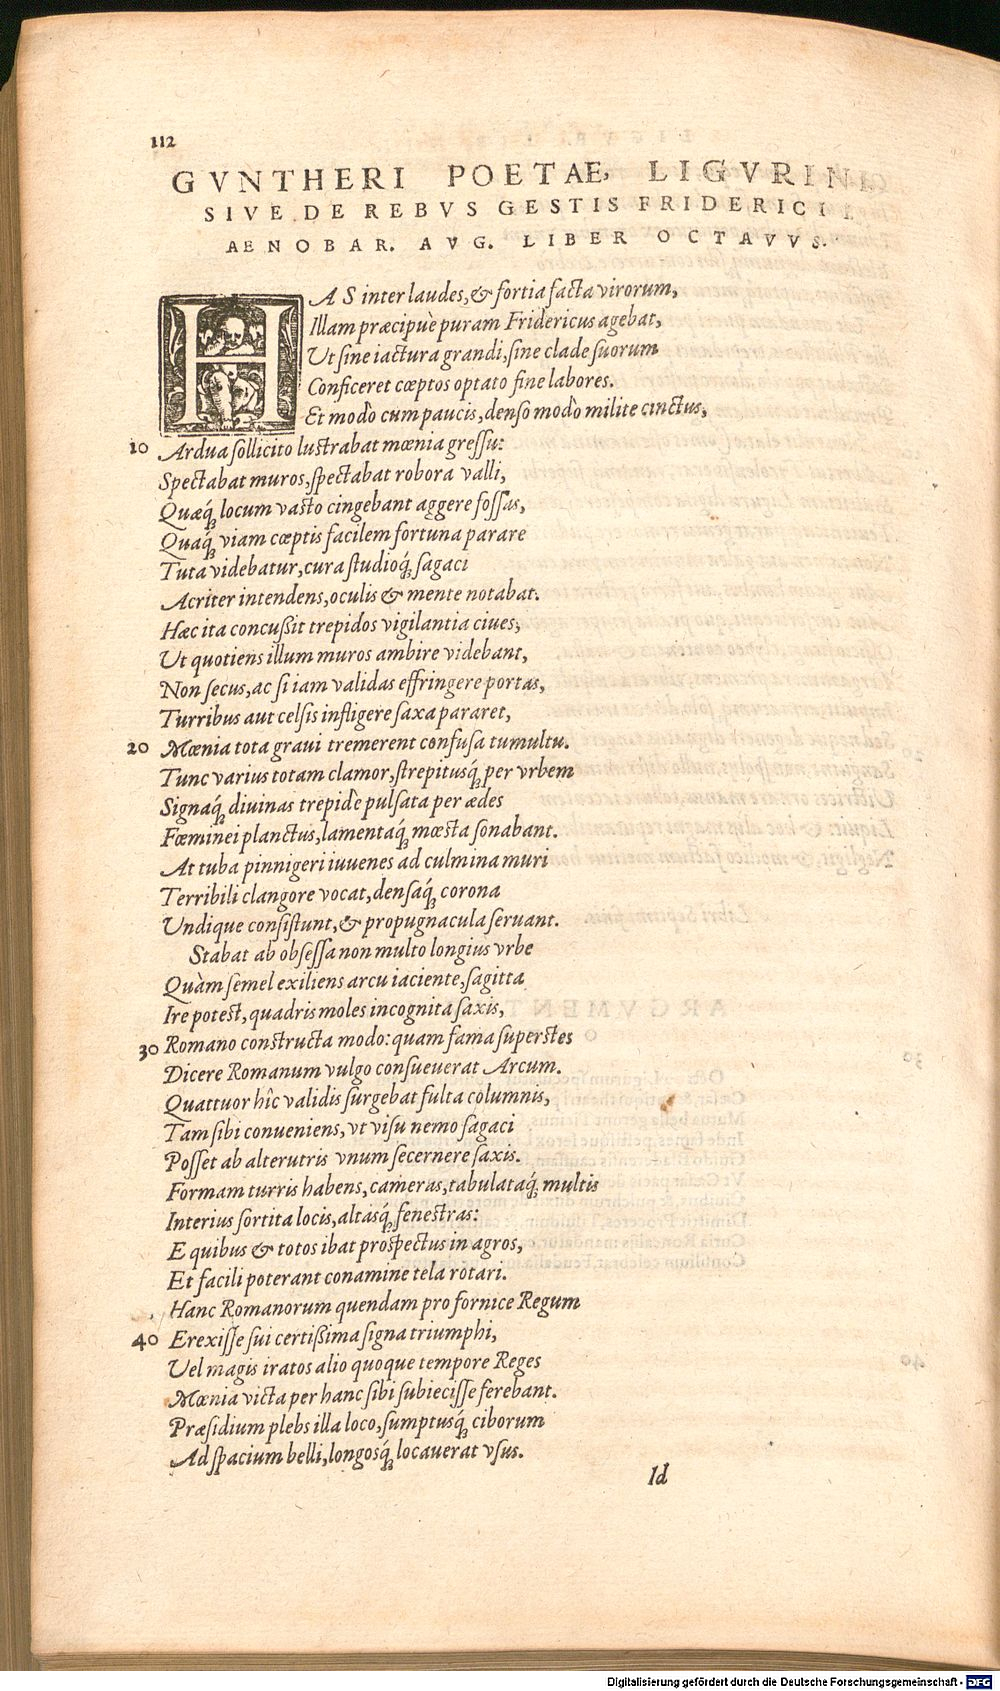 112
GVNTHERI POETAE, LIGVRINI
SIVE DE REBVS GESTIS FRIDERICI I.
AENOBAR. AVG. LIBER OCTAVVS.
HAS inter laudes, & fortia facta virorum,
Illam præcipuè puram Fridericus agebat,
Ut sine iactura grandi, sine clade suorum
Conficeret cœptos optato fine labores.
Et modò cum paucis, denso modò milite cinctus,
10 Ardua sollicito lustrabat mœnia gressu:
Spectabat muros, spectabat robora valli,
Quæq́; locum vasto cingebant aggere fossas,
Quaq́; viam cœptis facilem fortuna parare
Tuta videbatur, cura studioq́; sagaci
Acriter intendens, oculis & mente notabat.
Hæc ita concußit trepidos vigilantia ciues,
Ut quotiens illum muros ambire videbant,
Non secus, ac si iam validas effringere portas,
Turribus aut celsis infligere saxa pararet,
20 Mœnia tota graui tremerent confusa tumultu.
Tunc varius totam clamor, strepitusq́; per vrbem
Signaq́; diuinas trepidè pulsata per ædes
Fœminei planctus, lamentaq́; mœsta sonabant.
At tuba pinnigeri iuuenes ad culmina muri
Terribili clangore vocat, densaq́; corona
Undique consistunt, & propugnacula seruant.
Stabat ab obsessa non multo longius vrbe
Quàm semel exiliens arcu iaciente, sagitta
Ire potest, quadris moles incognita saxis,
30 Romano constructa modo: quam fama superstes
Dicere Romanum vulgo consueuerat Arcum.
Quattuor hîc validis surgebat fulta columnis,
Tam sibi conueniens, vt visu nemo sagaci
Posset ab alterutris vnum secernere saxis.
Formam turris habens, cameras, tabulataq́; multis
Interius sortita locis, altasq́; fenestras:
E quibus & totos ibat prospectus in agros,
Et facili poterant conamine tela rotari.
Hanc Romanorum quendam pro fornice Regum
40 Erexisse sui certißima signa triumphi,
Vel magis iratos alio quoque tempore Reges
Mœnia victa per hanc sibi subiecisse ferebant.
Præsidium plebs illa loco, sumptusq́; ciborum
Ad spacium belli, longosq́; locauerat vsus.
Id
Digitalisierung gefördert durch die Deutsche Forschungsgemeinschaft - DFG